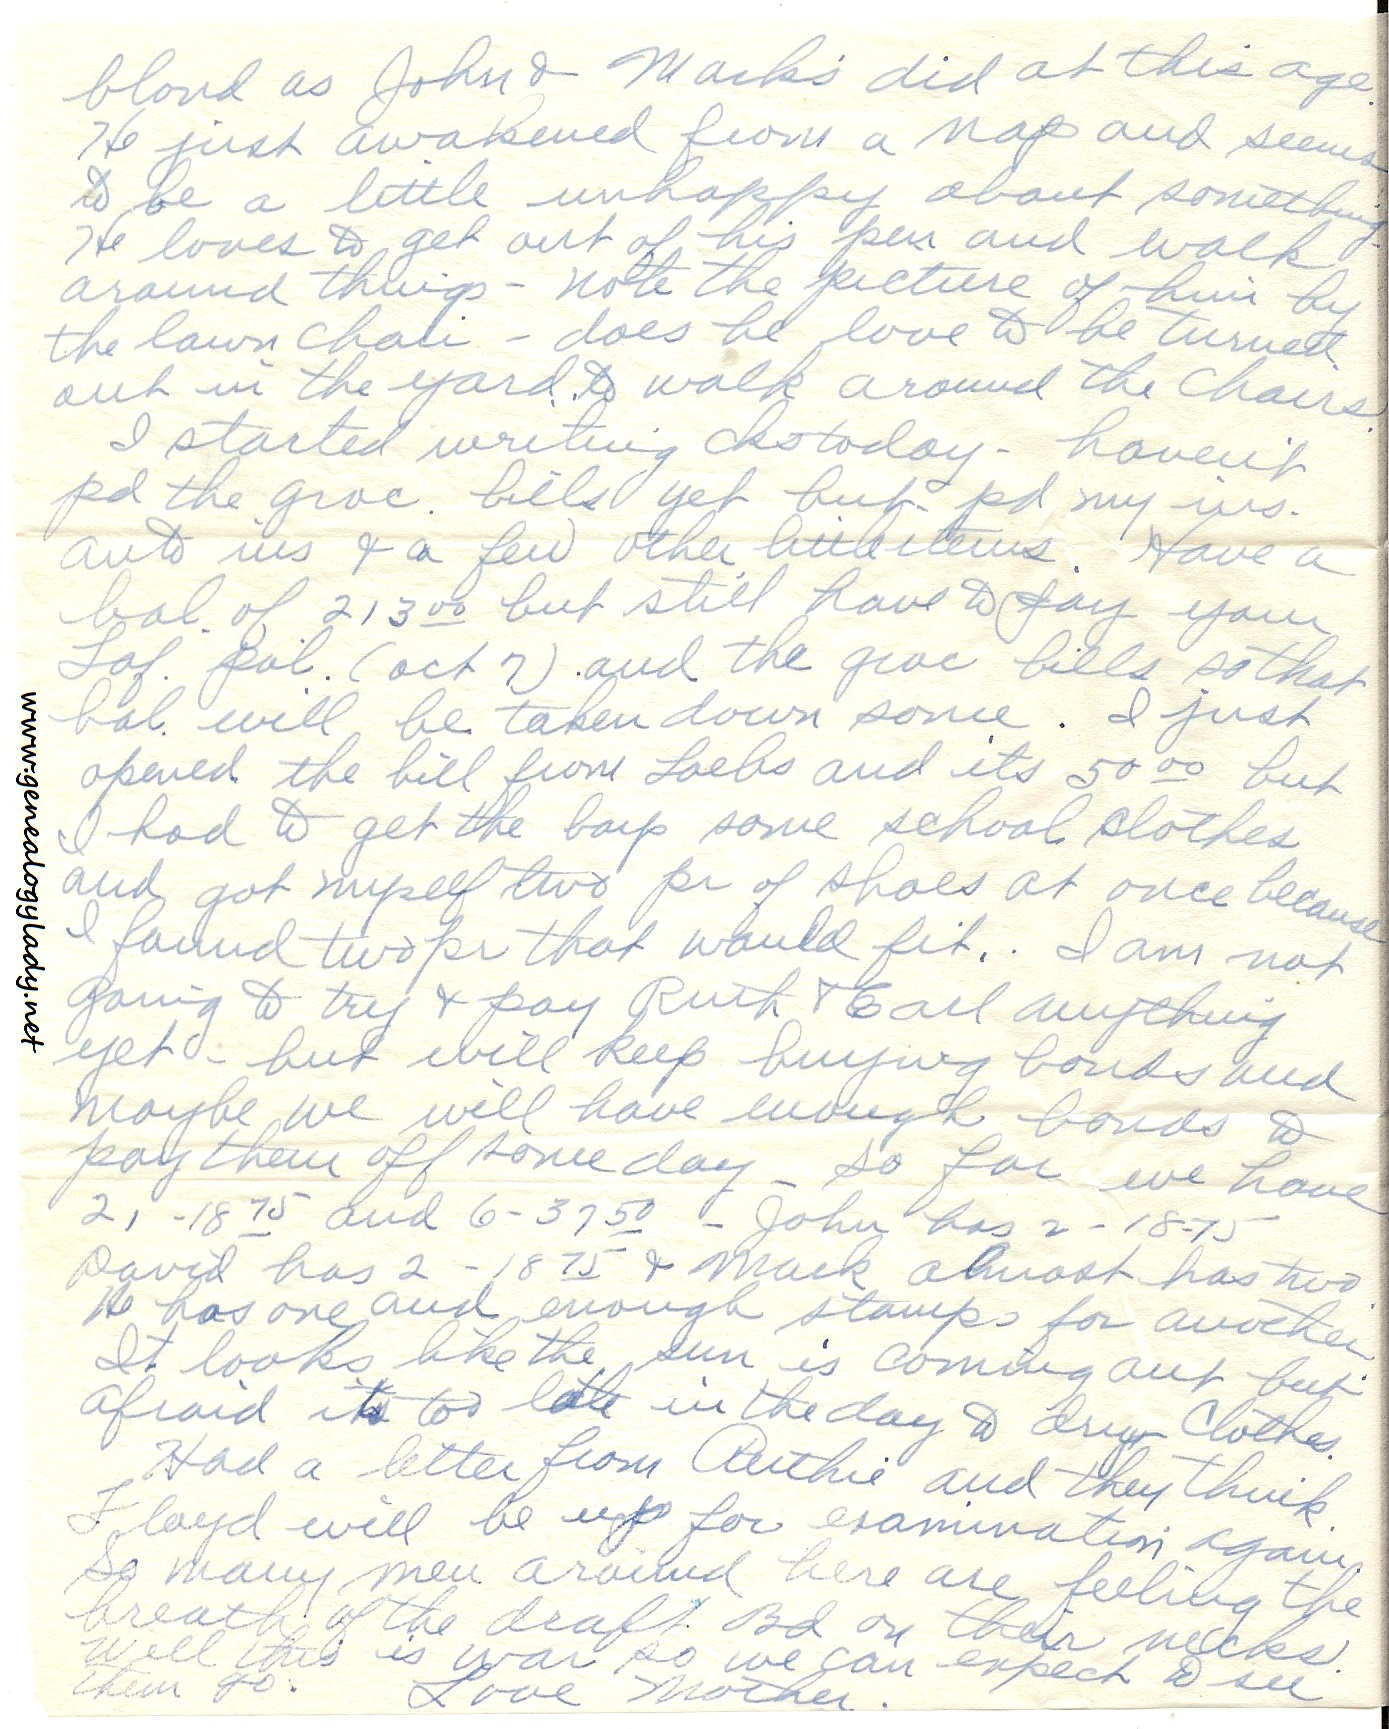 blond as John & Mark's did at this age.
He just awakened from a nap and seems
to be a little unhappy about something.
He loves to get out of his pen and walk
around things - note the picture of him by
the lawn chair - does he love to be turned
out in the yard to walk around the chairs.
I started writing cks today - haven't
pd the groc. bills yet but pd my ins.
auto ins & a few other little items. Have a
bal. of 213 00 but still have to pay your
Laf. pol. (oct 7) and the groc bills so that
bal. will be taken down some. I just
opened the bill from Loebs and its 50 00 but
I had to get the boys some school clothes
and got myself two pr of shoes at once because
I found two pr that would fit. I am not
going to try & pay Ruth & Earl anything
yet - but will keep buying bonds and
maybe we will have enough bonds to
pay them off some day - So far we have
21 - 18 75 and 6 - 37 50 - John has 2 - 18-75
David has 2 - 18 75 & Mark almost has two
He has one and enough stamps for another.
It looks like the sun is coming out but
afraid its too late in the day to dry clothes.
Had a letter from Ruthie and they think
Floyd will be up for examination again.
So many men around here are feeling the
breath of the draft Bd on their necks.
Well this is war so we can expect to see
them go. Love Mother.
www.genealogylady.net